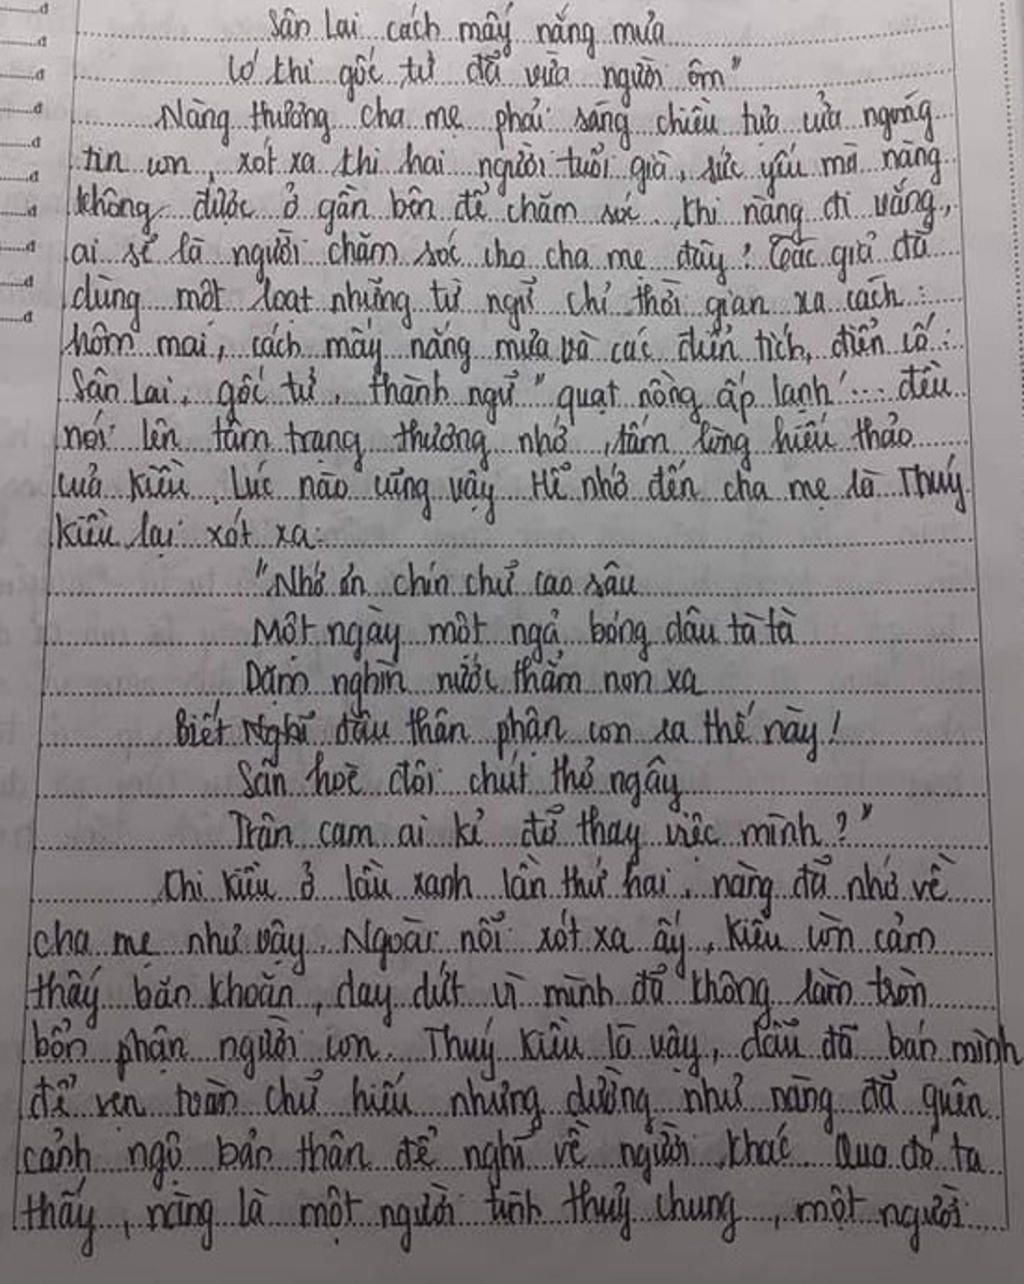 Sân Lai cách mấy nắng mưa
Có khi gốc tử đã vừa người ôm"
Nàng thương cha mẹ phải sáng chiều tựa cửa ngóng
tin con, xót xa khi hai người tuổi già, sức yếu mà nàng
không được ở gần bên để chăm sóc. Khi nàng đi vắng,
ai sẽ là người chăm sóc cho cha mẹ đây? Tác giả đã
dùng một loạt những từ ngữ chỉ thời gian xa cách:
hôm mai, cách mấy nắng mưa và các điển tích, điển cố:
Sân Lai, gốc tử, thành ngữ "quạt nồng ấp lạnh"... đều
nói lên tâm trạng thương nhớ, tấm lòng hiếu thảo
của Kiều. Lúc nào cũng vậy Hễ nhớ đến cha mẹ là Thuý
Kiều lại xót xa:
"Nhớ ơn chín chữ cao sâu
Một ngày một ngả bóng dâu tà tà
Dặm nghìn nước thẳm non xa
Biết Nghĩ đâu thân phận con ra thế này!
Sân hoè đôi chút thơ ngây
Trân cam ai kẻ đỡ thay việc mình?"
Khi Kiều ở lầu xanh lần thứ hai, nàng đã nhớ về
cha mẹ như vậy. Ngoài nỗi xót xa ấy, Kiều còn cảm
thấy băn khoăn, day dứt vì mình đã không làm tròn
bổn phận người con. Thuý Kiều là vậy, dẫu đã bán mình
để vẹn toàn chữ hiếu nhưng dường như nàng đã quên
cảnh ngộ bản thân để nghĩ về người khác. Qua đó ta
thấy, nàng là một người tình thuỷ chung, một người